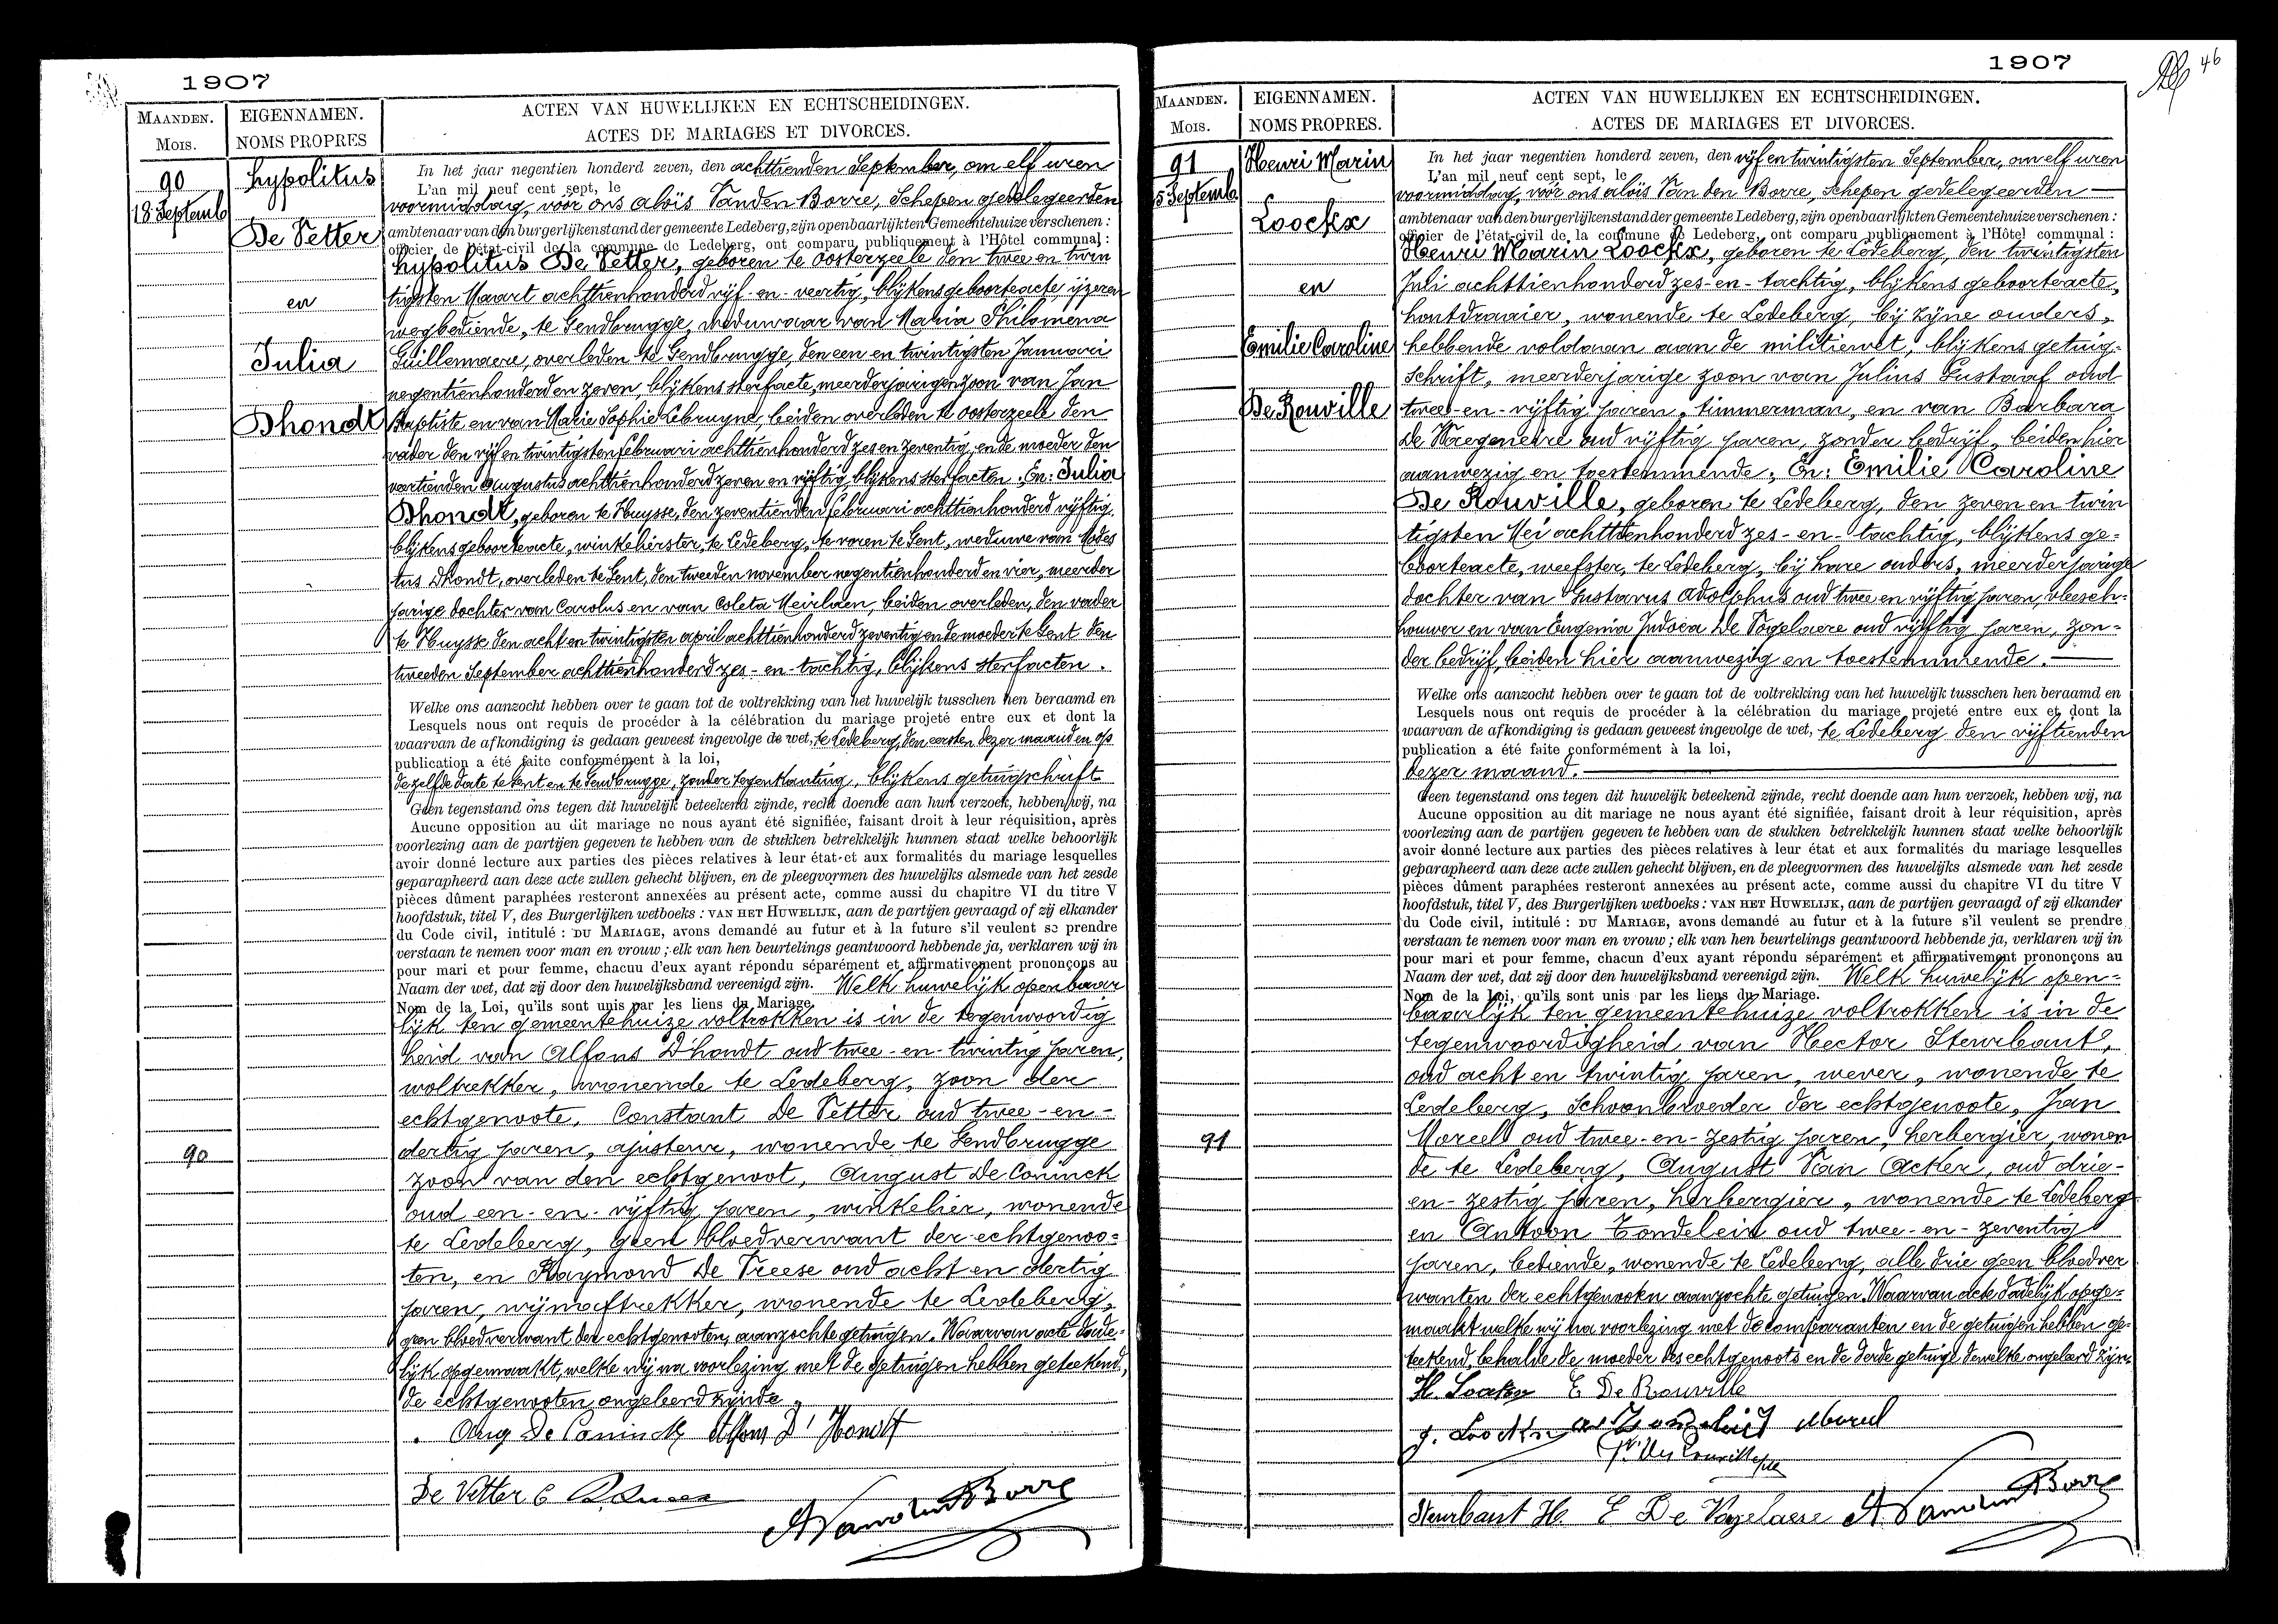 1907
MAANDEN.
Mois.
EIGENNAMEN.
NOMS PROPRES
ACTEN VAN HUWELIJKEN EN ECHTSCHEIDINGEN.
ACTES DE MARIAGES ET DIVORCES.
90
18 Septemb
Hypolitus
De Vetter
en
Julia
Dhondt
In het jaar negentien honderd zeven, den achttienden September, om elf uren
L'an mil neuf cent sept, le
voormiddag, voor ons Aloïs Vanden Borre, Schepen gedelegeerden
ambtenaar van den burgerlijken stand der gemeente Ledeberg, zijn openbaarlijk ten Gemeentehuize verschenen :
officier de l'état-civil de la commune de Ledeberg, ont comparu publiquement à l'Hôtel communal :
Hypolitus De Vetter, geboren te Oosterzeele den twee en twin
tigsten Maart achttienhonderd vijf-en-veertig, blijkens geboorteacte, ijzeren
wegbediende, te Gendbrugge, weduwaar van Maria Philomena
Guillemaere, overleden te Gendbrugge, den een en twintigsten Januari
negentienhonderden zeven, blijkens sterfacte, meerderjarigen zoon van Jan
Baptiste en van Marie Sophie Lebruyne, beiden overleden te Oosterzeele den
vader den vijf en twintigsten Februari achttienhonderd zes en zeventig, en de moeder den
veertienden Augustus achttienhonderd zeven en vijftig, blijkens sterfacten. En: Julia
Dhondt, geboren te Huysse, den zeventienden Februari achttienhonderd vijftig,
blijkens geboorteacte, winkelierster, te Ledeberg, te voren te Gent, weduwe van Modes
tus Dhondt, overleden te Gent, den tweeden november negentienhonderd en vier, meerder
jarige dochter van Carolus en van Coleta Meirlaen, beiden overleden, den vader
te Huysse den acht en twintigsten april achttienhonderd zeventig en de moeder te Gent den
tweeden September achttienhonderd zes-en-tachtig, blijkens sterfacten.
Welke ons aanzocht hebben over te gaan tot de voltrekking van het huwelijk tusschen hen beraamd en
Lesquels nous ont requis de procéder à la célébration du mariage projeté entre eux et dont la
waarvan de afkondiging is gedaan geweest ingevolge de wet, te Ledeberg, den eersten dezer maand en op
publication a été faite conformément à la loi,
dezelfde date te Gent en te Gendbrugge, zonder tegenkanting, blijkens getuigschrift
Geen tegenstand ons tegen dit huwelijk beteekend zijnde, recht doende aan hun verzoek, hebben wij, na
Aucune opposition au dit mariage ne nous ayant été signifiée, faisant droit à leur réquisition, après
voorlezing aan de partijen gegeven te hebben van de stukken betrekkelijk hunnen staat welke behoorlijk
avoir donné lecture aux parties des pièces relatives à leur état et aux formalités du mariage lesquelles
geparapheerd aan deze acte zullen gehecht blijven, en de pleegvormen des huwelijks alsmede van het zesde
pièces dûment paraphées resteront annexées au présent acte, comme aussi du chapitre VI du titre V
hoofdstuk, titel V, des Burgerlijken wetboeks : VAN HET HUWELIJK, aan de partijen gevraagd of zij elkander
du Code civil, intitulé : DU MARIAGE, avons demandé au futur et à la future s'il veulent se prendre
verstaan te nemen voor man en vrouw ; elk van hen beurtelings geantwoord hebbende ja, verklaren wij in
pour mari et pour femme, chacuu d'eux ayant répondu séparément et affirmativement prononçons au
Naam der wet, dat zij door den huwelijksband vereenigd zijn. Welk huwelijk openbaar
Nom de la Loi, qu'ils sont unis par les liens du Mariage.
lijk ten gemeentehuize voltrokken is in de tegenwoordig
heid van Alfons D'hondt oud twee-en-twintig jaren,
woltrekker, wonende te Ledeberg, zoon der
echtgenoote, Constant De Vetter oud twee-en-
dertig jaren, ajusteur, wonende te Gendbrugge
zoon van den echtgenoot, August De Coninck
oud een-en-vijftig jaren, winkelier, wonende
te Ledeberg, geen bloedverwant der echtgenoo=
ten, en Raymond De Vreese oud acht en dertig
jaren, wijnaftrekker, wonende te Ledeberg,
geen bloedverwant der echtgenooten, aanzochte getuigen. Waarvan acte dade=
lijk opgemaakt, welke wij na voorlezing met de getuigen hebben geteekend,
de echtgenooten ongeleerd zijnde.
90
Aug De Coninck Alfons D'Hondt
De Vetter C
A Vanden Borre
1907
46
MAANDEN.
Mois.
EIGENNAMEN.
NOMS PROPRES.
ACTEN VAN HUWELIJKEN EN ECHTSCHEIDINGEN.
ACTES DE MARIAGES ET DIVORCES.
91
5 Septemb.
Henri Marin
Loockx
en
Emilie Caroline
De Rouville
In het jaar negentien honderd zeven, den vijf en twintigsten September, om elf uren
L'an mil neuf cent sept, le
voormiddag, voor ons Aloïs Van den Borre, schepen gedelegeerden
ambtenaar van den burgerlijken stand der gemeente Ledeberg, zijn openbaarlijk ten Gemeentehuize verschenen :
officier de l'état-civil de la commune de Ledeberg, ont comparu publiquement à l'Hôtel communal :
Henri Marin Loockx, geboren te Ledeberg, den twintigsten
Juli achttienhonderd zes-en-tachtig, blijkens geboorteacte,
houtdraaier, wonende te Ledeberg, bij zijne ouders,
hebbende voldaan aan de militiewet, blijkens getuig=
schrift, meerderjarige zoon van Julius Gustaaf oud
twee-en-vijftig jaren, timmerman, en van Barbara
De Waegeneire oud vijftig jaren, zonder bedrijf, beiden hier
aanwezig en toestemmende; En: Emilie Caroline
De Rouville, geboren te Ledeberg, den zeven en twin
tigsten Mei achttienhonderd zes-en-tachtig, blijkens ge=
boorteacte, weefster, te Ledeberg, bij hare ouders, meerderjarige
dochter van Gustavus Adolphus oud twee en vijftig jaren, vleesch=
houwer en van Eugenia Judoca De Vogelaere oud vijftig jaren, zon=
der bedrijf, beiden hier aanwezig en toestemmende.
Welke ons aanzocht hebben over te gaan tot de voltrekking van het huwelijk tusschen hen beraamd en
Lesquels nous ont requis de procéder à la célébration du mariage projeté entre eux et dont la
waarvan de afkondiging is gedaan geweest ingevolge de wet, te Ledeberg den vijftienden
publication a été faite conformément à la loi,
dezer maand.
Geen tegenstand ons tegen dit huwelijk beteekend zijnde, recht doende aan hun verzoek, hebben wij, na
Aucune opposition au dit mariage ne nous ayant été signifiée, faisant droit à leur réquisition, après
voorlezing aan de partijen gegeven te hebben van de stukken betrekkelijk hunnen staat welke behoorlijk
avoir donné lecture aux parties des pièces relatives à leur état et aux formalités du mariage lesquelles
geparapheerd aan deze acte zullen gehecht blijven, en de pleegvormen des huwelijks alsmede van het zesde
pièces dûment paraphées resteront annexées au présent acte, comme aussi du chapitre VI du titre V
hoofdstuk, titel V, des Burgerlijken wetboeks : VAN HET HUWELIJK, aan de partijen gevraagd of zij elkander
du Code civil, intitulé : DU MARIAGE, avons demandé au futur et à la future s'il veulent se prendre
verstaan te nemen voor man en vrouw ; elk van hen beurtelings geantwoord hebbende ja, verklaren wij in
pour mari et pour femme, chacun d'eux ayant répondu séparément et affirmativement prononçons au
Naam der wet, dat zij door den huwelijksband vereenigd zijn. Welk huwelijk open=
Nom de la Loi, qu'ils sont unis par les liens du Mariage.
baarlijk ten gemeentehuize voltrokken is in de
tegenwoordigheid van Hector Steurbaut,
oud acht en twintig jaren, wever, wonende te
Ledeberg, schoonbroeder der echtgenoote, Jan
Moreels oud twee-en-zestig jaren, herbergier, wonen
de te Ledeberg, August Van Acker, oud drie-
en-zestig jaren, herbergier, wonende te Ledeberg
en Antoon Tondelein oud twee-en-zeventig
jaren, bediende, wonende te Ledeberg, alle drie geen bloedver
wanten der echtgenooten aanzochte getuigen. Waarvan acte dadelijk opge=
maakt welke wij na voorlezing met de comparanten en de getuigen hebben ge=
teekend, behalve de moeder des echtgenoots en de derde getuige dewelke ongeleerd zijn.
91
H. Loockx E De Rouville
J. Loockx Moreel
Steurbaut H. E De Vogelaere A Vanden Borre